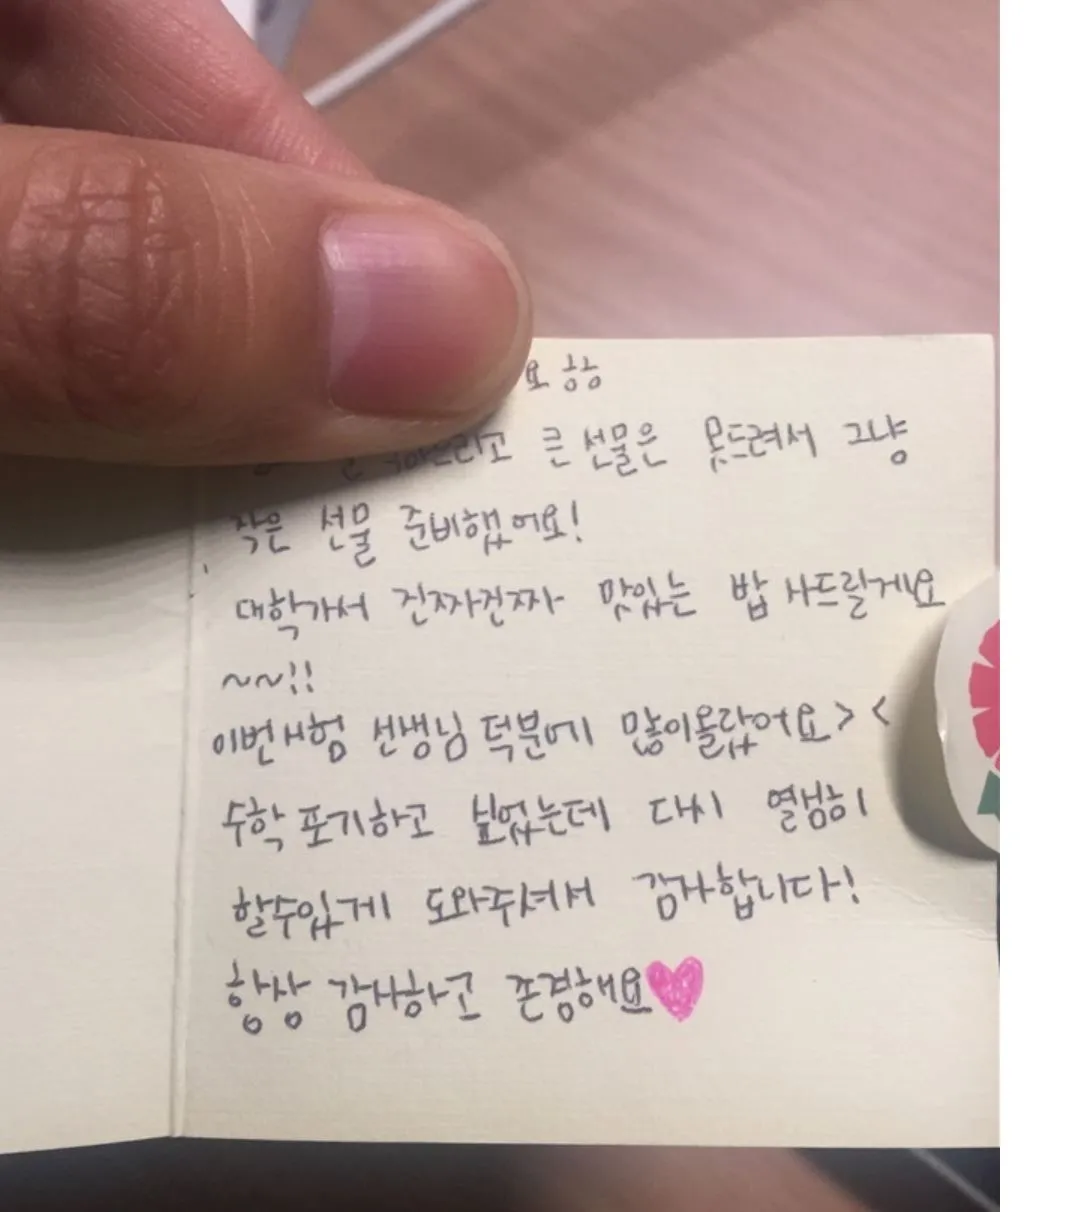 요 ㅎㅎ
큰 선물은 못드려서 그냥
작은 선물 준비했어요!
대학가서 진짜진짜 맛있는 밥 사드릴게요
~~!!
이번시험 선생님 덕분에 많이올랐어요> <
수학 포기하고 싶었는데 다시 열심히
할수있게 도와주셔서 감사합니다!
항상 감사하고 존경해요